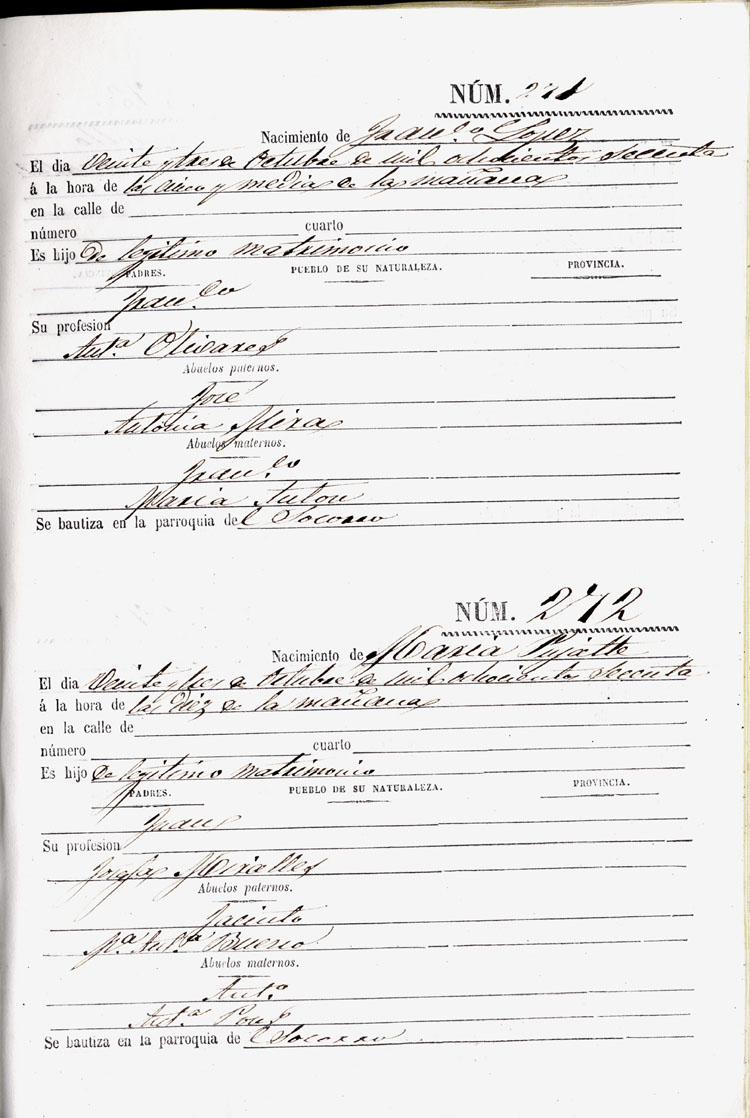 NÚM. 271
Nacimiento de Fran.co Lopez
El dia Veinte y tres de Octubre de mil ochocientos Secenta
á la hora de las cinco y media de la mañana
en la calle de
número cuarto
Es hijo De legitimo matrimonio
PADRES. PUEBLO DE SU NATURALEZA. PROVINCIA.
Fran.co
Su profesion
Ant.a Olivares
Abuelos paternos.
José
Antonia Mira
Abuelos maternos.
Fran.co
Maria Anton
Se bautiza en la parroquia de l Socorro
NÚM. 272
Nacimiento de Maria
El dia Veinte y tres de Octubre de mil ochocientos Secenta
á la hora de las diez de la mañana
en la calle de
número cuarto
Es hijo De legitimo matrimonio
PADRES. PUEBLO DE SU NATURALEZA. PROVINCIA.
Su profesion
Josefa Miralles
Abuelos paternos.
Jacinto
M.a Ant.a Bueno
Abuelos maternos.
Ant.o
Ant.a Pons
Se bautiza en la parroquia de l Socorro